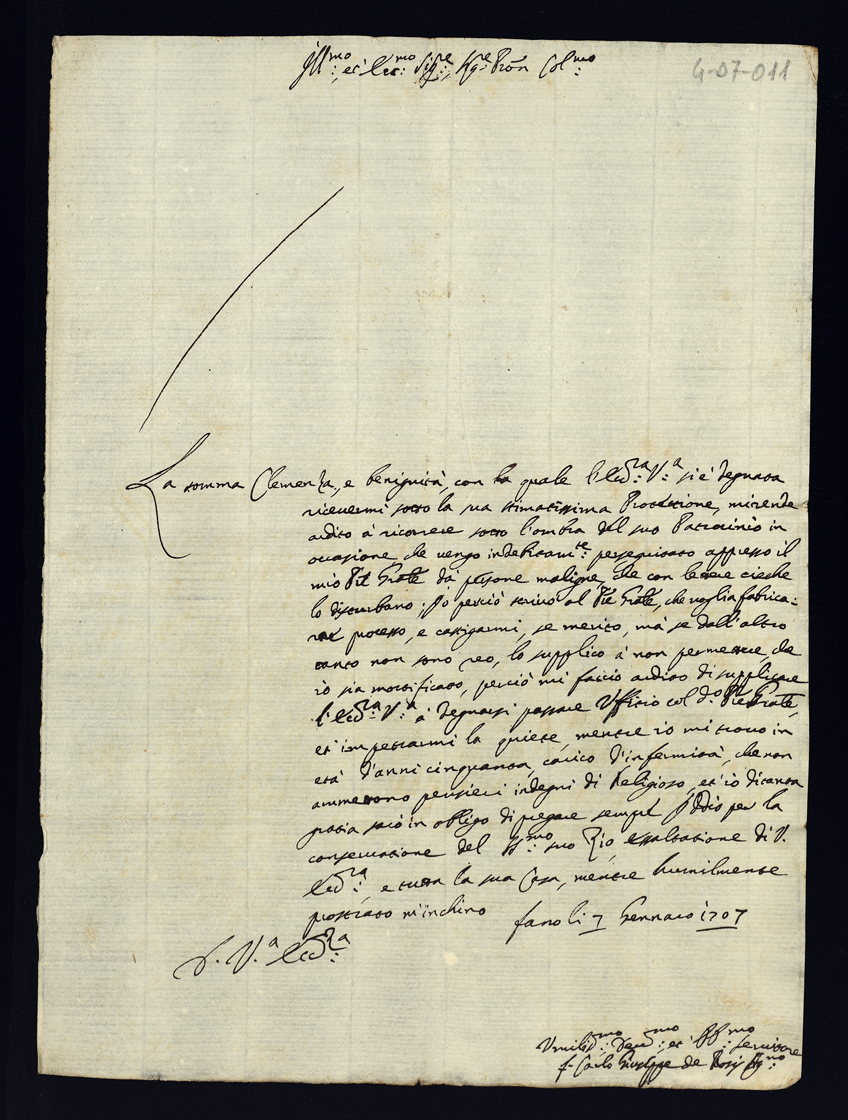 Ill:mo et Ecc:mo Sig:re Sig:re Pron Col:mo
4-07-011
La somma Clemenza, e benignità, con la quale l'Ecc:za V:a si è degnata
ricevermi sotto la sua stimatissima Protezzione, mi rende
ardito à ricorrere sotto l'ombra del suo Patrocinio in
occasione che vengo indebitam:te perseguitato appresso il
mio Pre Gnãle da persone maligne, che con lettere cieche
lo disturbano; Io perciò scrivo al Pre Gnãle, che voglia fabrica=
re processo, e castigarmi, se merito, mà se dall'altro
canto non sono reo, lo supplico à non permettere, che
io sia mortificato, perciò mi faccio ardito di supplicare
l'Ecc:za V:a à degnarsi passare Ufficio col d:o Pre Gnãle,
et impetrarmi la quiete, mentre io mi trovo in
età d'anni cinquanta, carico d'infermità, che non
ammettono pensieri indegni di Religioso, et io di tanta
grazia sarò in obligo di pregare sempre Iddio per la
conservazione del SS:mo suo Zio, essaltazione di V.
Ecc:za, e tutta la sua Casa, mentre humilmente
prostrato m'inchino Fano li 7 Gennaro 1707
D. V.a Ecc:za
Umiliss:mo Devot:mo et Obb:mo servitore
f. Carlo Giuseppe de Rossi